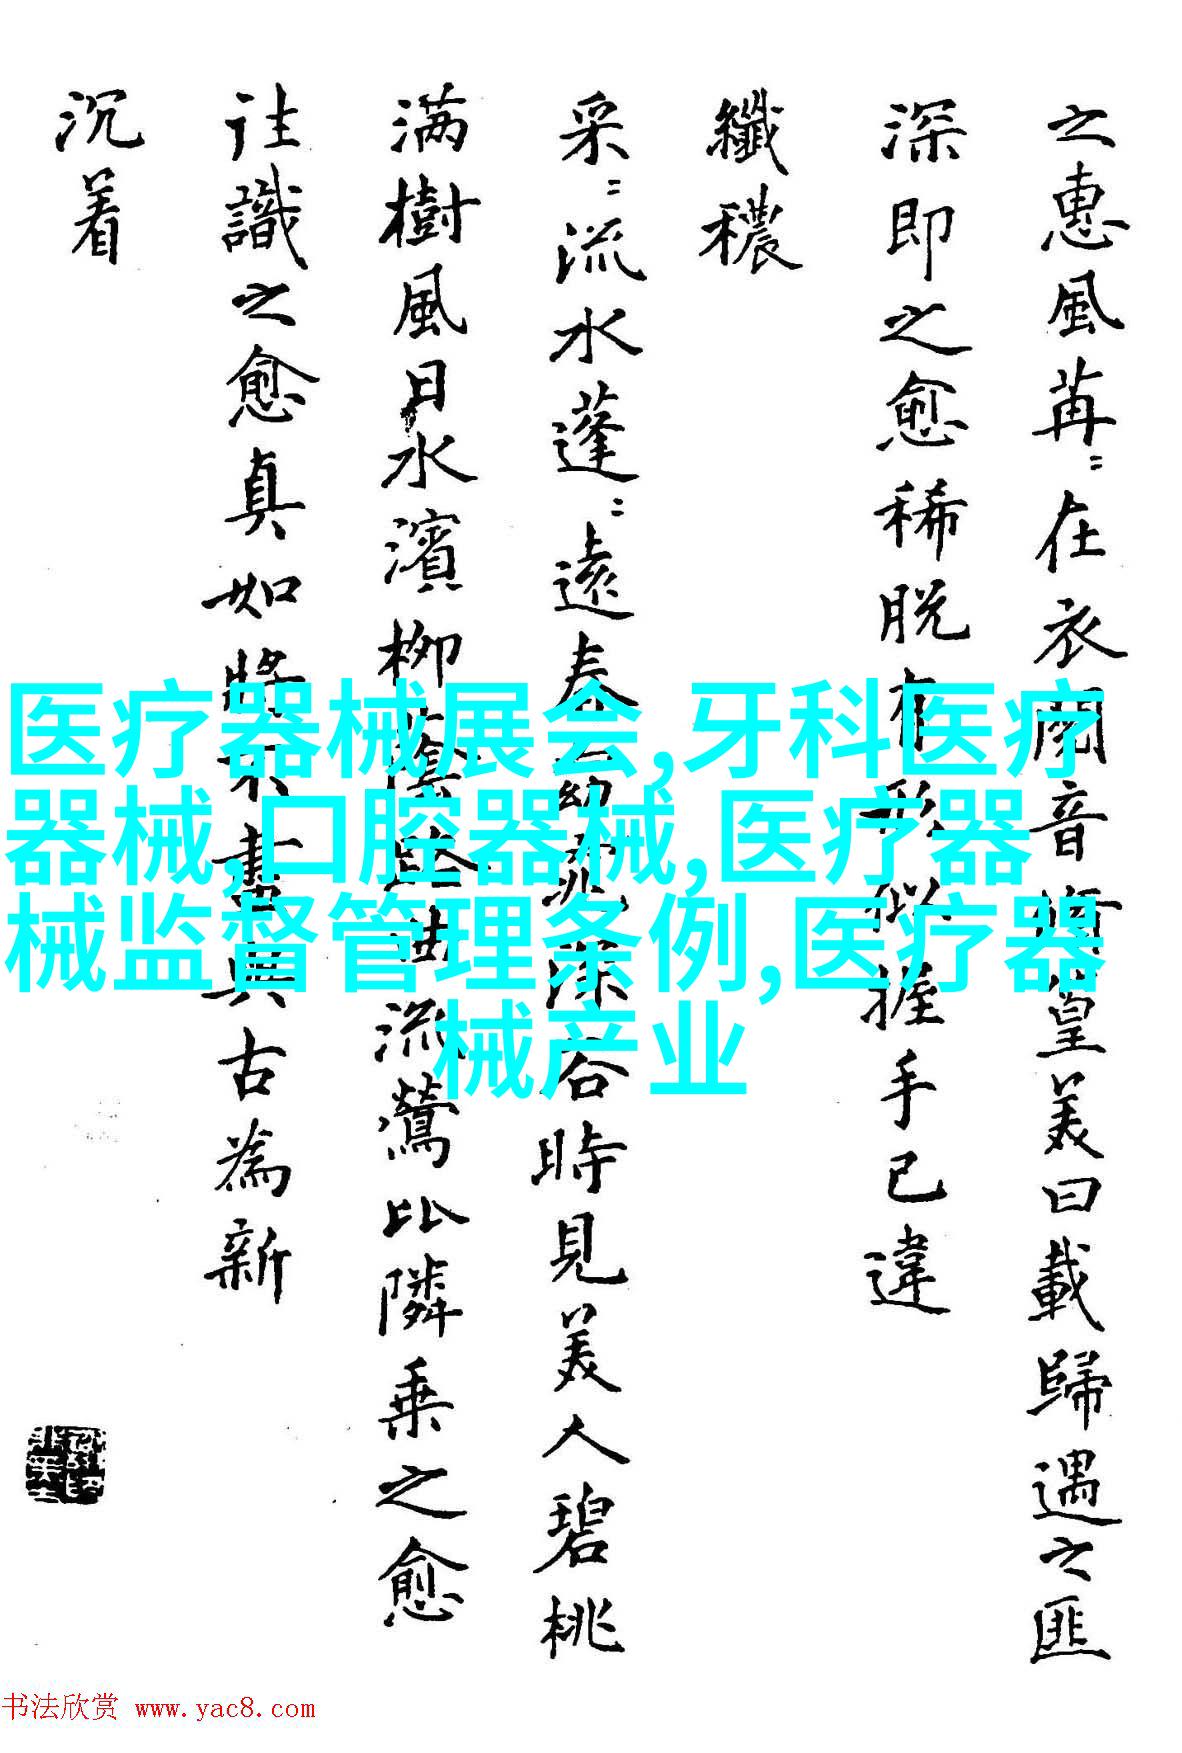 之惠風苒〻在衣閱音脩篁美曰載歸遇之匪
深即之愈稀脱有形似握手已違
纖穠
采〻流水蓬〻遠春窈窕深谷時見美人碧桃
满樹風日水濱柳陰路曲流鶯比隣乗之愈
往識之愈真如將不盡與古為新
沉着
医疗器械展会,牙科医疗
器械,口腔器械,医疗器
械监督管理条例,医疗器
械产业
书法欣赏 www.yac8.com